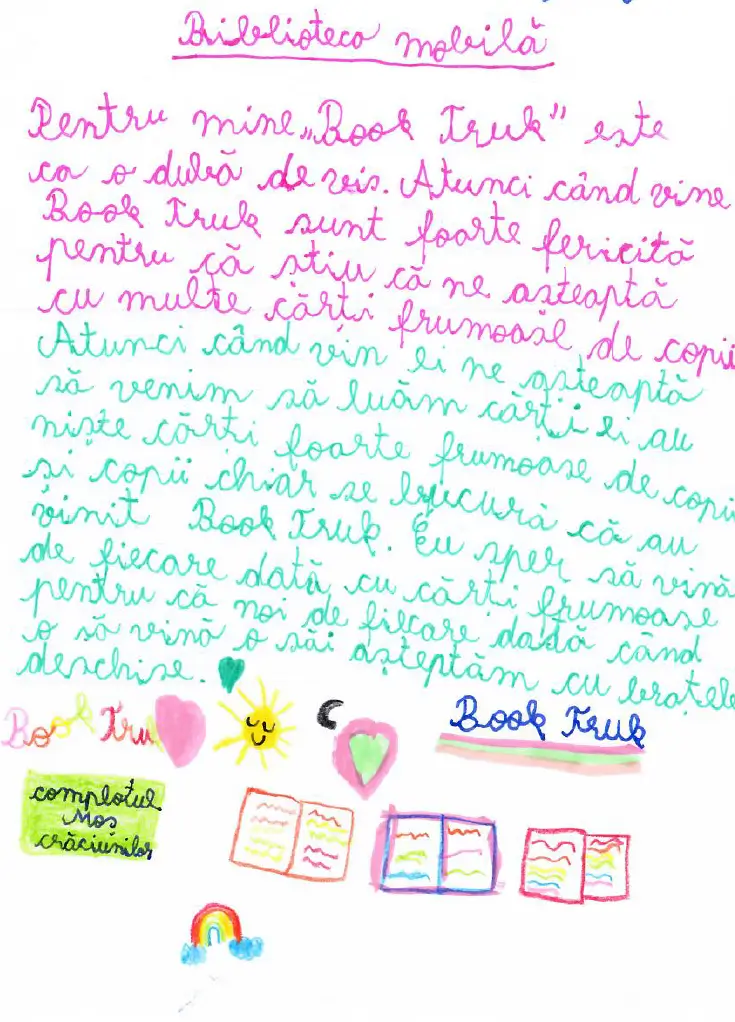 Biblioteca mobilă
Pentru mine „Book Truk” este
ca o dubă de vis. Atunci când vine
Book Truk sunt foarte fericită
pentru că știu că ne așteaptă
cu multe cărți frumoase de copii
Atunci când vin ei ne așteaptă
să venim să luăm cărți ei au
niște cărți foarte frumoase de copii
și copii chiar se bucură că au
vinit Book Truk. Eu sper să vină
de fiecare dată cu cărți frumoase
pentru că noi de fiecare dată când
o să vină o săi așteptăm cu brațele
deschise.
Book Tru
Book Truk
complotul
Moș
crăciunilor